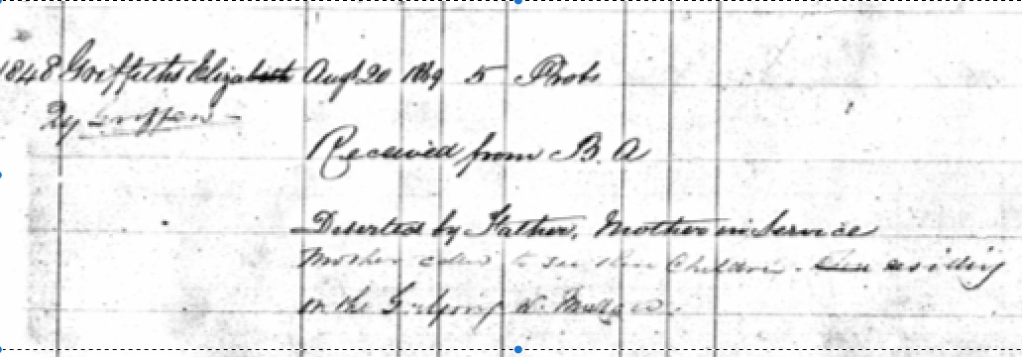 1848 Griffiths Elizabeth Augt 20 1869 5 Probt
Qy Griffen
Received from B. A
Deserted by Father, Mother in Service
Mother called to see these Children. residing
on the W.